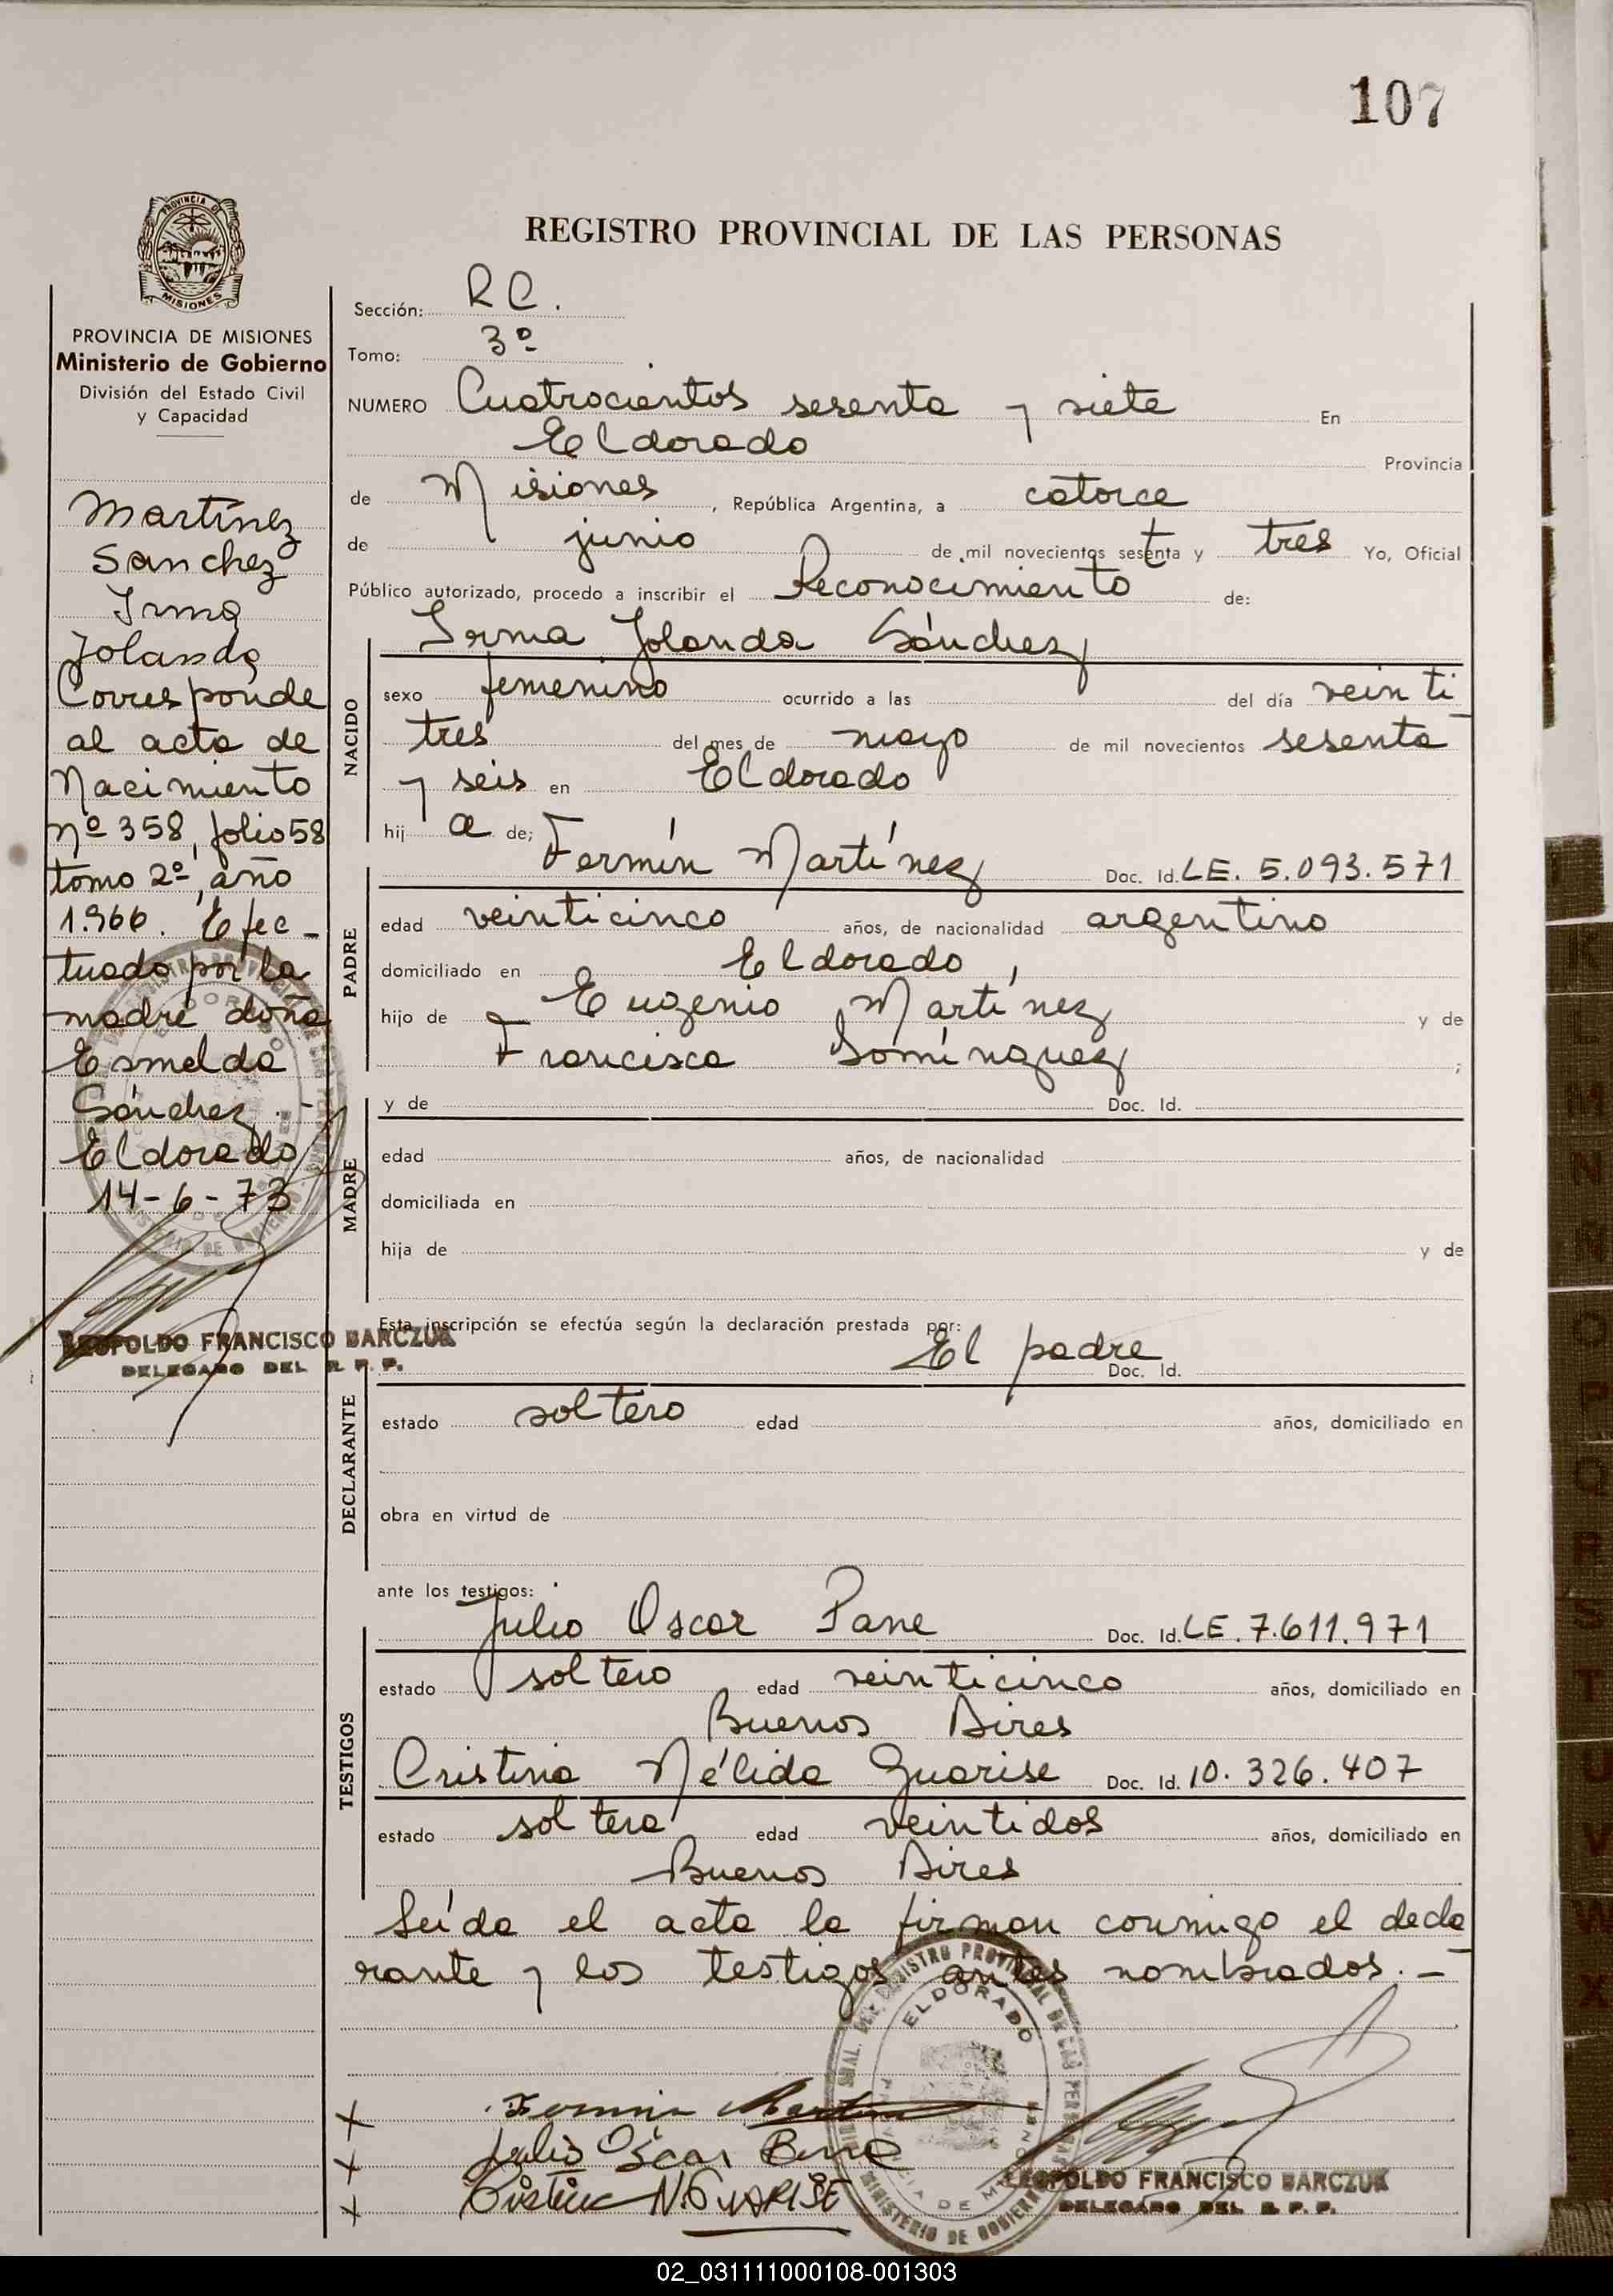 107
PROVINCIA DE
MISIONES
PROVINCIA DE MISIONES
Ministerio de Gobierno
División del Estado Civil
y Capacidad
Martínez
Sanchez
Irma
Jolanda
Corresponde
al acta de
Nacimiento
nº 358, folio 58
tomo 2º, año
1.966. Efec-
tuado por la
madre doña
Esmelda
Sánchez.-
Eldorado
14-6-73
LEOPOLDO FRANCISCO BARCZUK
DELEGADO DEL R. P. P.
REGISTRO PROVINCIAL DE LAS PERSONAS
Sección: R C.
Tomo: 3º
NUMERO Cuatrocientos sesenta y siete En
Eldorado Provincia
de Misiones, República Argentina, a catorce
de junio de mil novecientos sesetnta y tres Yo, Oficial
Público autorizado, procedo a inscribir el Reconocimiento de:
NACIDO
Irma Jolanda Sánchez
sexo femenino ocurrido a las del día veinti
tres del mes de mayo de mil novecientos sesenta
y seis en Eldorado
hij a de;
PADRE
Fermín Martínez Doc. Id. LE. 5.093.571
edad veinticinco años, de nacionalidad argentino
domiciliado en Eldorado,
hijo de Eugenio Martínez y de
Francisca Domínguez ;
MADRE
y de Doc. Id.
edad años, de nacionalidad
domiciliada en
hija de y de
Esta inscripción se efectúa según la declaración prestada por:
DECLARANTE
El padre Doc. Id.
estado soltero edad años, domiciliado en
obra en virtud de
ante los testigos:
TESTIGOS
Julio Oscar Pane Doc. Id. LE. 7.611.971
estado soltero edad veinticinco años, domiciliado en
Buenos Aires
Cristina Nélida Guarise Doc. Id. 10.326.407
estado soltera edad veintidos años, domiciliado en
Buenos Aires
Leída el acta la firman conmigo el decla
rante y los testigos antes nombrados.-
ELDORADO
MINISTERIO DE GOBIERNO
x Fermin Martinez
x Julio Oscar
x Cristina N. GUARISE
LEOPOLDO FRANCISCO BARCZUK
DELEGADO DEL R. P. P.
K
L
M
N
Ñ
O
P
Q
R
S
T
U
V
W
X
02_031111000108-001303